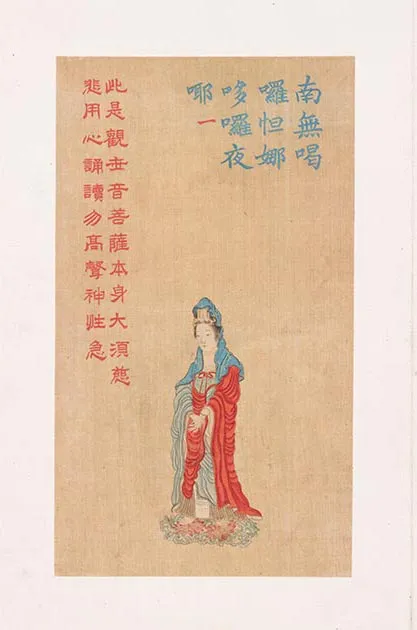 南無喝
囉怛娜
哆囉夜
耶一
此是觀世音菩薩本身大須慈
悲用心誦讀勿高聲神性急